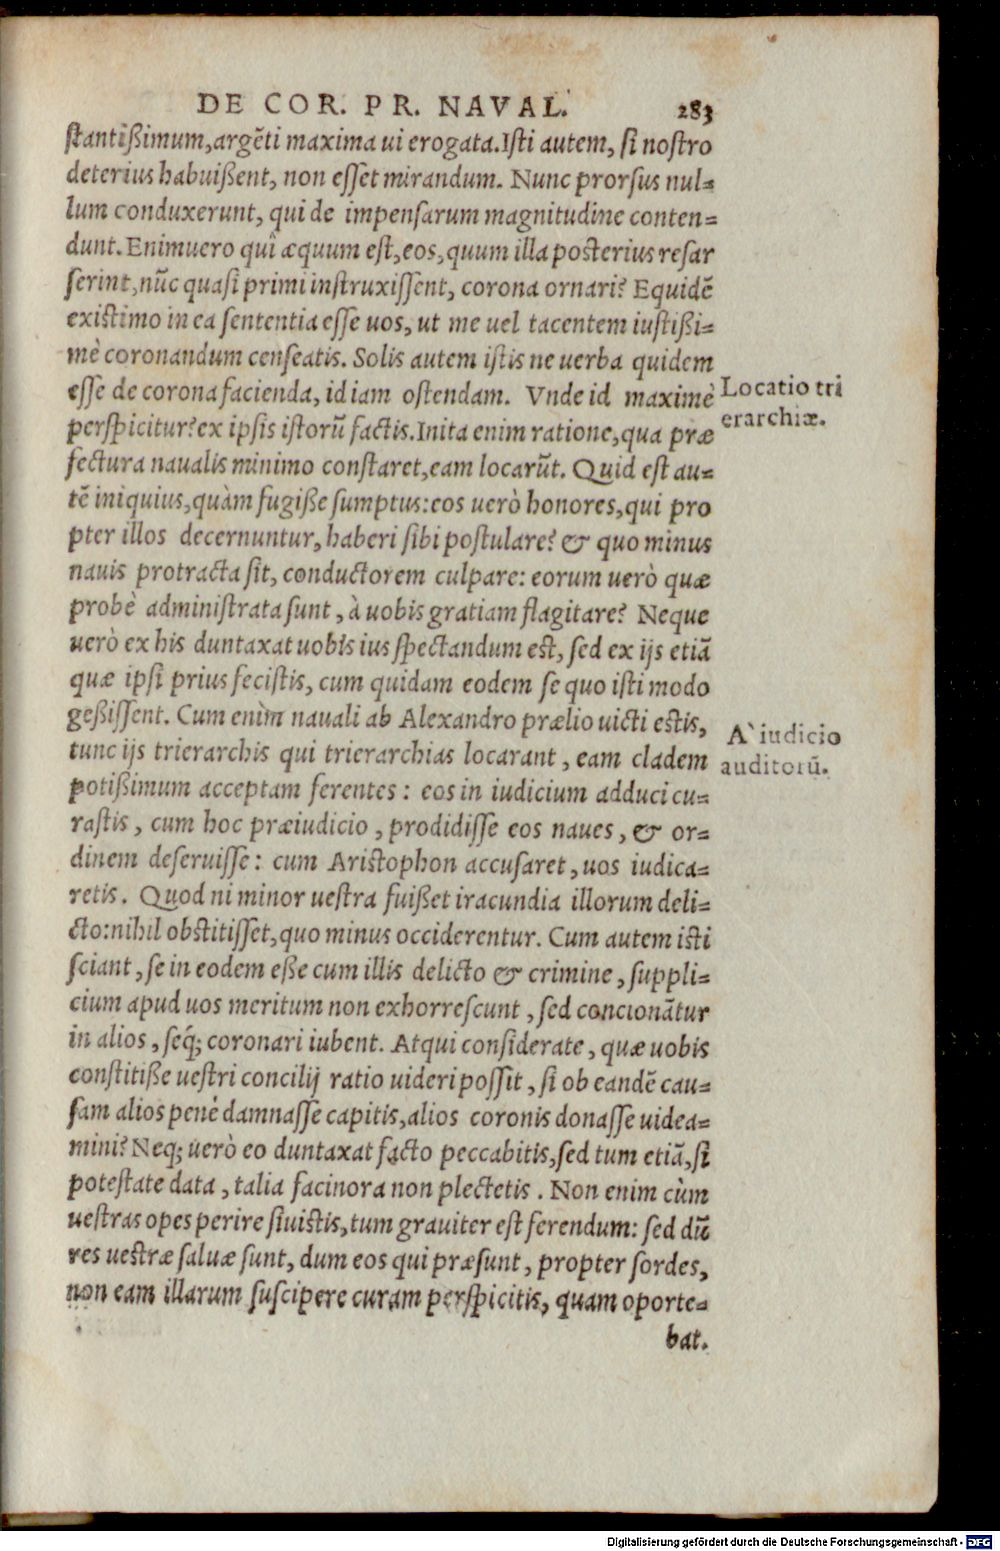 DE COR. PR. NAVAL. 283
stantißimum, argẽti maxima ui erogata. Isti autem, si nostro
deterius habuißent, non esset mirandum. Nunc prorsus nul=
lum conduxerunt, qui de impensarum magnitudine conten=
dunt. Enimuero quî æquum est, eos, quum illa posterius resar
serint, nũc quasi primi instruxissent, corona ornari? Equidẽ
existimo in ea sententia esse uos, ut me uel tacentem iustißi=
mè coronandum censeatis. Solis autem istis ne uerba quidem
esse de corona facienda, id iam ostendam. Vnde id maximè
Locatio tri
erarchiæ.
perspicitur? ex ipsis istorũ factis. Inita enim ratione, qua præ
fectura naualis minimo constaret, eam locarũt. Quid est au=
tẽ iniquius, quàm fugiße sumptus: eos uerò honores, qui pro
pter illos decernuntur, haberi sibi postulare? & quo minus
nauis protracta sit, conductorem culpare: eorum uerò quæ
probè administrata sunt, à uobis gratiam flagitare? Neque
uerò ex his duntaxat uobis ius spectandum est, sed ex ijs etiã
quæ ipsi prius fecistis, cum quidam eodem se quo isti modo
geßissent. Cum enim nauali ab Alexandro prælio uicti estis,
A` iudicio
auditorũ.
tunc ijs trierarchis qui trierarchias locarant, eam cladem
potißimum acceptam ferentes: eos in iudicium adduci cu=
rastis, cum hoc præiudicio, prodidisse eos naues, & or=
dinem deseruisse: cum Aristophon accusaret, uos iudica=
retis. Quod ni minor uestra fuißet iracundia illorum deli=
cto: nihil obstitisset, quo minus occiderentur. Cum autem isti
sciant, se in eodem eße cum illis delicto & crimine, suppli=
cium apud uos meritum non exhorrescunt, sed concionãtur
in alios, seq́; coronari iubent. Atqui considerate, quæ uobis
constitiße uestri concilij ratio uideri possit, si ob eandẽ cau=
sam alios penè damnasse capitis, alios coronis donasse uidea=
mini? Neq; uerò eo duntaxat facto peccabitis, sed tum etiã, si
potestate data, talia facinora non plectetis. Non enim cùm
uestras opes perire siuistis, tum grauiter est ferendum: sed dũ
res uestræ saluæ sunt, dum eos qui præsunt, propter sordes,
non eam illarum suscipere curam perspicitis, quam oporte=
bat.
Digitalisierung gefördert durch die Deutsche Forschungsgemeinschaft - DFG